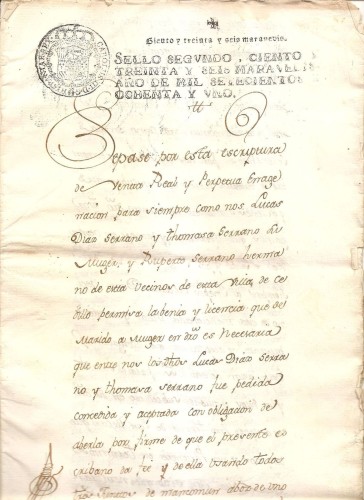 Ciento y treinta y seis maravedis.
SELLO SEGVNDO, CIENTO
TREINTA Y SEIS MARAVEDIS
AÑO DE MIL SETECIENTOS
OCHENTA Y VNO.
Sepase por esta escriptura
de Venta Real y Perpetua Enage
nacion para siempre como nos Lucas
Diaz Serrano y thomasa Serrano su
Muger, y Ruperto Serrano herma
no de esta Vecinos de esta Villa de Ce
dillo permisa la benia y licencia que de
Marido a Muger en dro es Necesaria
que entre nos los dhos Lucas Diaz Serra
no y thomasa Serrano fue pedida
concedida y aceptada con obligacion de
aberla por firme de que el presente es
cribano da fe y de ella usando todos
de mancomun de uno